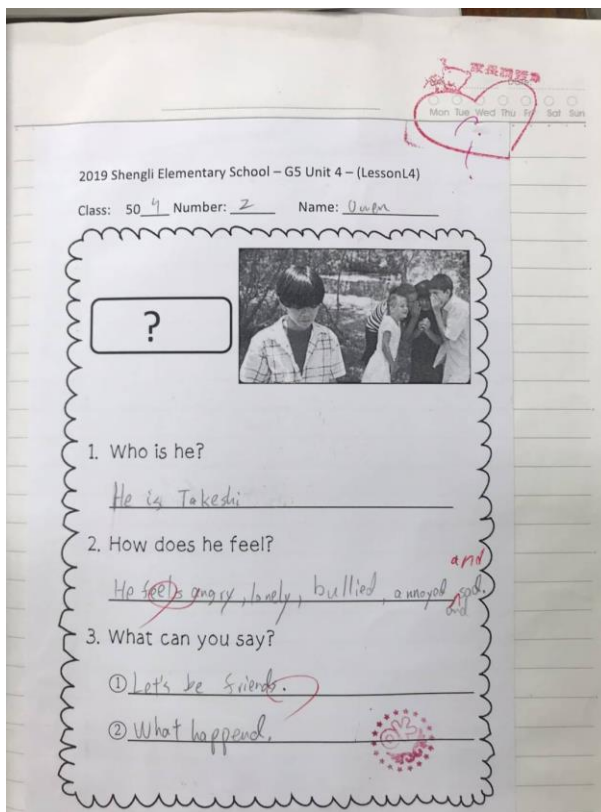 Date
Mon Tue Wed Thu Fri Sat Sun
2019 Shengli Elementary School – G5 Unit 4 – (LessonL4)
Class: 50 4 Number: 2 Name: Owen
?
1. Who is he?
He is Takeshi
2. How does he feel?
and
He feels angry, lonely, bullied, annoyed sad.
and
3. What can you say?
① Let's be friends.
② What happend.